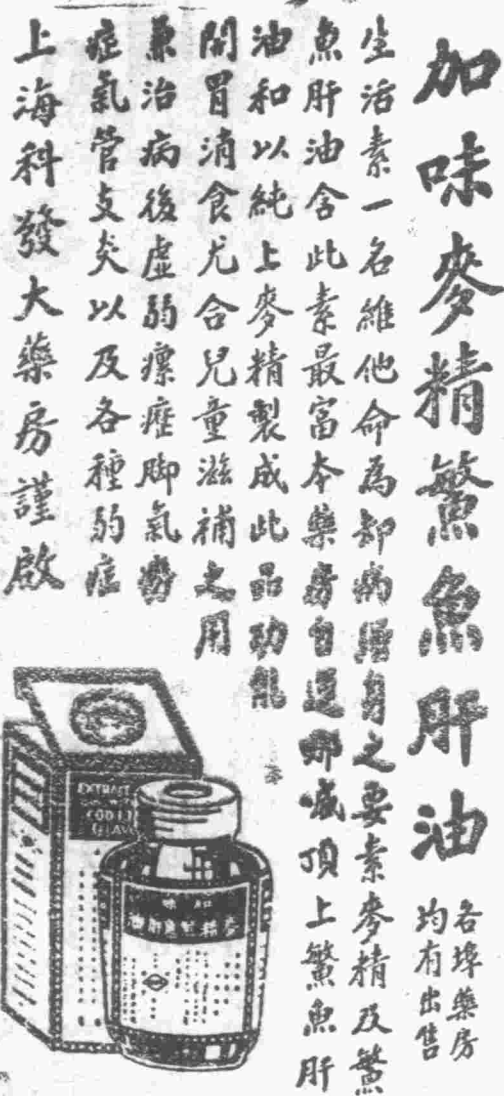 加味麥精鰵魚肝油
各埠藥房
均有出售
生活素一名維他命為卻病強身之要素麥精及鰵
魚肝油含此素最富本藥房自選哪威頂上鰵魚肝
油和以純上麥精製成此品功能
開胃消食尤合兒童滋補之用
兼治病後虛弱瘰癧脚氣癆
症氣管支炎以及各種弱症
上海科發大藥房謹啟
EXTRACT
COD LI
FLAVO
加味
麥精鰵魚肝油